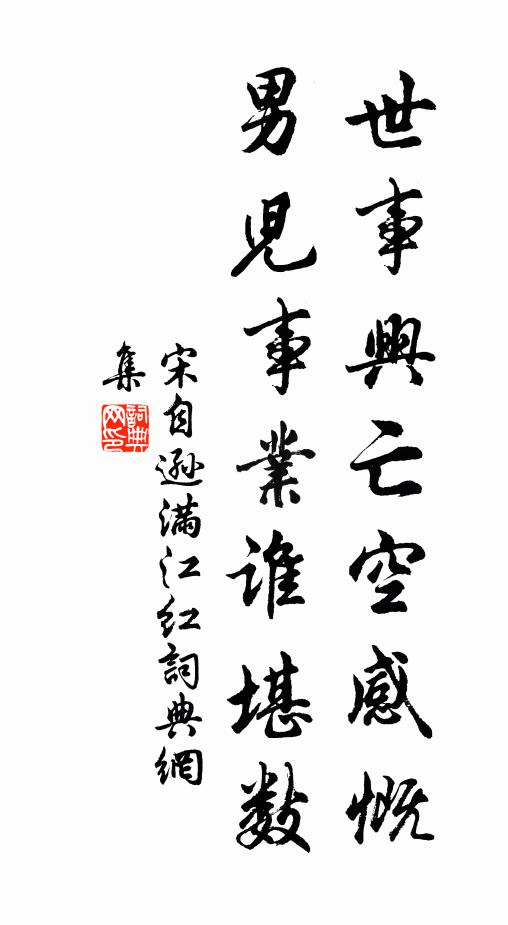 世事興亡空感慨
男兒事業誰堪數
宋自遜滿江红詞典網
集
詞典
网印